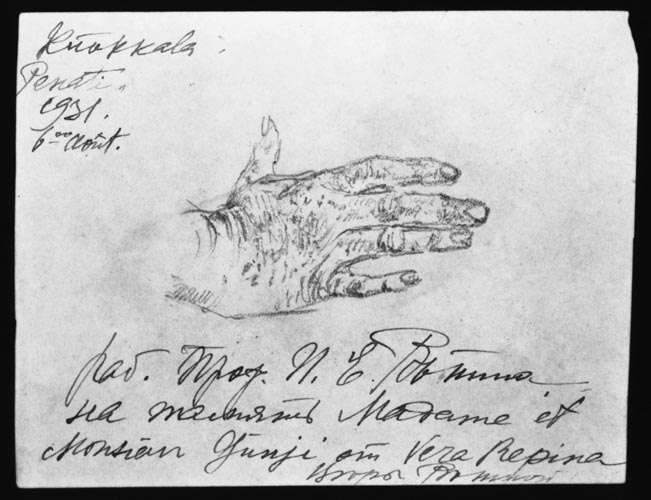 Kuokkala.
Penati.
1931.
6-го Août.
раб. Проф. И. Е. Рѣпина
на память Madame et
Monsieur Junji от Vera Repina
Вѣры Рѣпиной